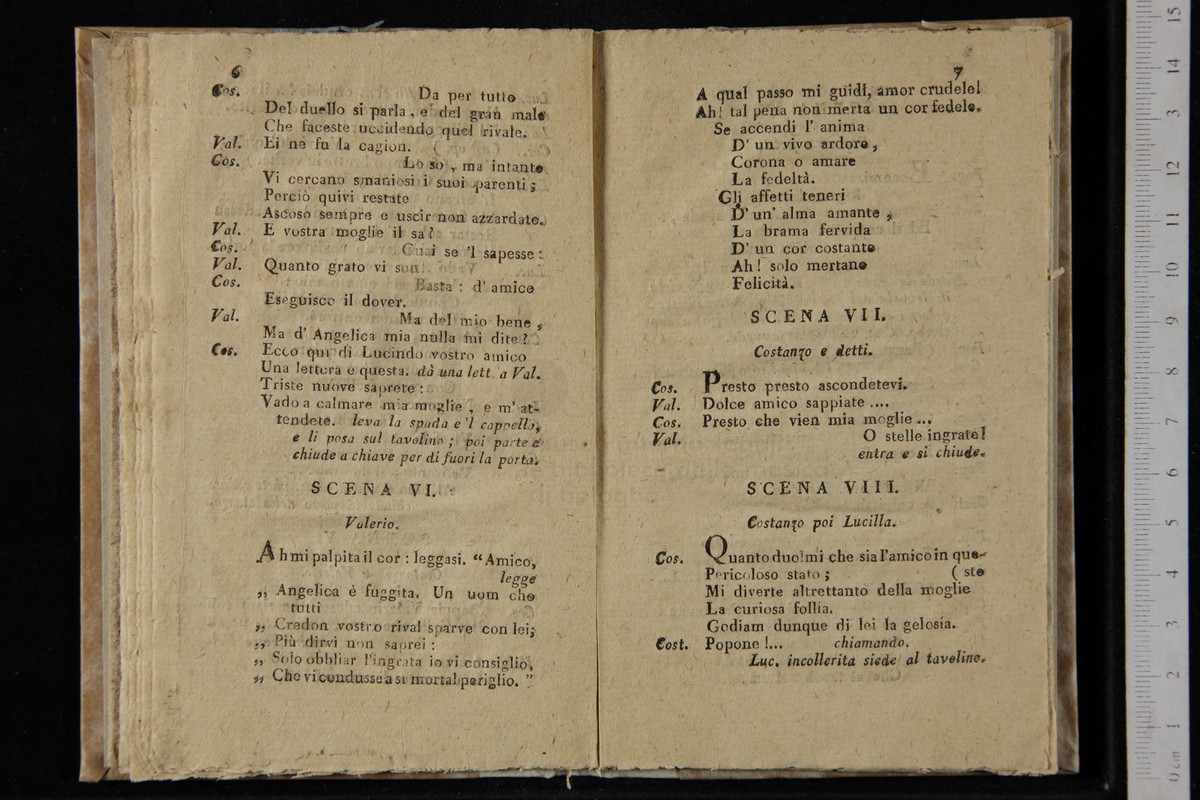 6
Cos. Da per tutto
Del duello si parla, e del gran male
Che faceste uccidendo quel rivale.
Val. Ei ne fu la cagion.
Cos. Lo so, ma intanto
Vi cercano smaniosi i suoi parenti;
Perciò quivi restate
Ascoso sempre e uscir non azzardate.
Val. E vostra moglie il sa?
Cos. Guai se 'l sapesse:
Val. Quanto grato vi son!
Cos. Basta: d' amico
Eseguisco il dover.
Val. Ma del mio bene,
Ma d' Angelica mia nulla mi dite?
Cos. Ecco qui di Lucindo vostro amico
Una lettera è questa. dà una lett. a Val.
Triste nuove saprete:
Vado a calmare mia moglie, e m' at-
tendete. leva la spada e 'l cappello,
e li posa sul tavolino; poi parte e
chiude a chiave per di fuori la porta.
SCENA VI.
Valerio.
Ah mi palpita il cor: leggasi. “Amico,
legge
„ Angelica è fuggita. Un uom che
tutti
„ Credon vostro rival sparve con lei;
„ Più dirvi non saprei:
„ Solo obbliar l'ingrata io vi consiglio,
„ Che vi condusse a sì mortal periglio. ”
7
A qual passo mi guidi, amor crudele!
Ah! tal pena non merta un cor fedele.
Se accendi l' anima
D' un vivo ardore,
Corona o amare
La fedeltà.
Gli affetti teneri
D' un' alma amante,
La brama fervida
D' un cor costante
Ah! solo mertano
Felicità.
SCENA VII.
Costanzo e detti.
Cos. Presto presto ascondetevi.
Val. Dolce amico sappiate ....
Cos. Presto che vien mia moglie ...
Val. O stelle ingrate!
entra e si chiude.
SCENA VIII.
Costanzo poi Lucilla.
Cos. Quanto duolmi che sia l'amico in que-
Pericoloso stato; ( sto
Mi diverte altrettanto della moglie
La curiosa follia.
Godiam dunque di lei la gelosía.
Cost. Popone!... chiamando.
Luc. incollerita siede al tavolino.